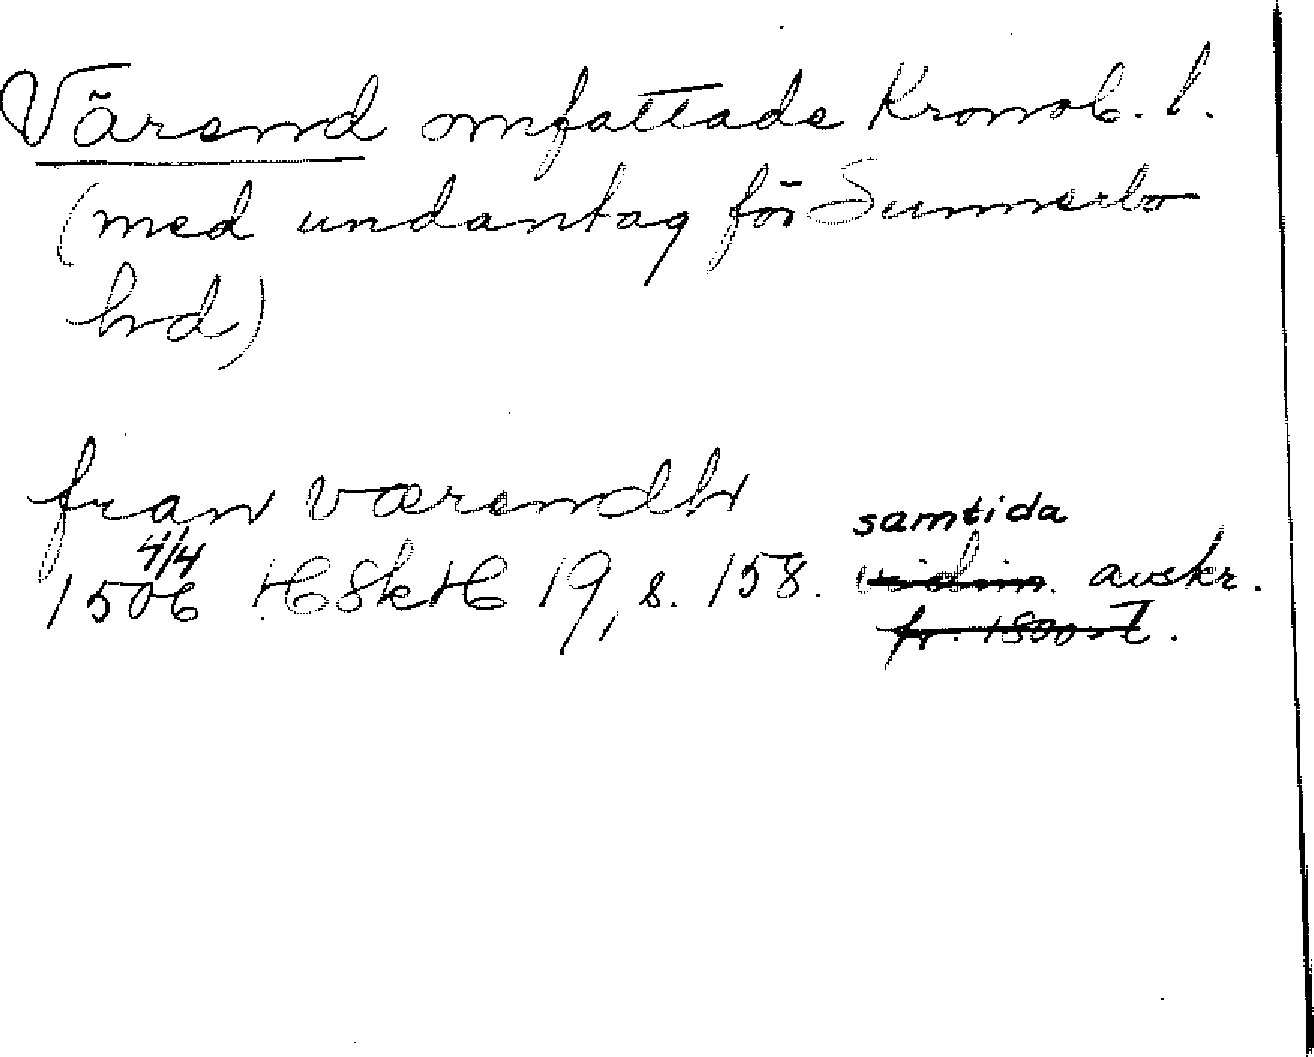 Värend omfattade Kronob. l.
(med undantag för Sunnerbo
hd)
franværendh
samtida
4/4
1506 HSkH 19, s. 158. vidim. avskr.
fr. 1500-t.